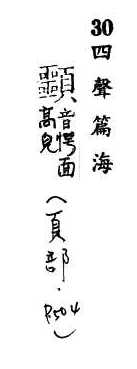 30四聲篇海
音愕面
高皃
（頁部．P.504）